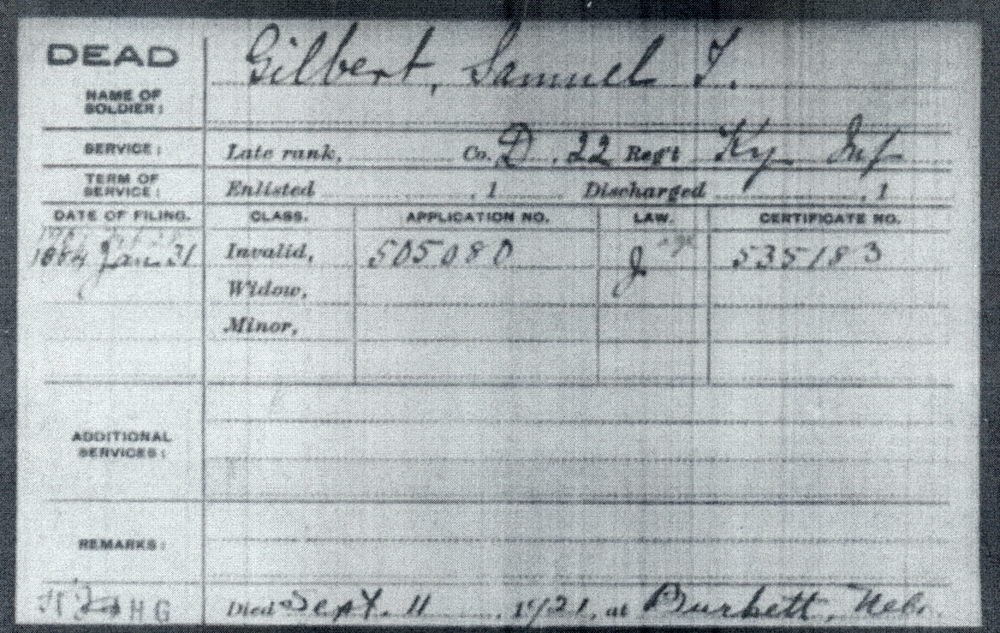 DEAD
NAME OF SOLDIER: Gilbert, Samuel T.
SERVICE: Late rank, Co. D, 22 Reg't Ky Inf
TERM OF SERVICE: Enlisted , 1 Discharged , 1
DATE OF FILING. CLASS. APPLICATION NO. LAW. CERTIFICATE NO.
1884 Jan. 31 Invalid, 505080 J 535183
Widow,
Minor,
ADDITIONAL SERVICES:
REMARKS:
H G Died Sept. 11, 1921, at Burkett, Nebr.